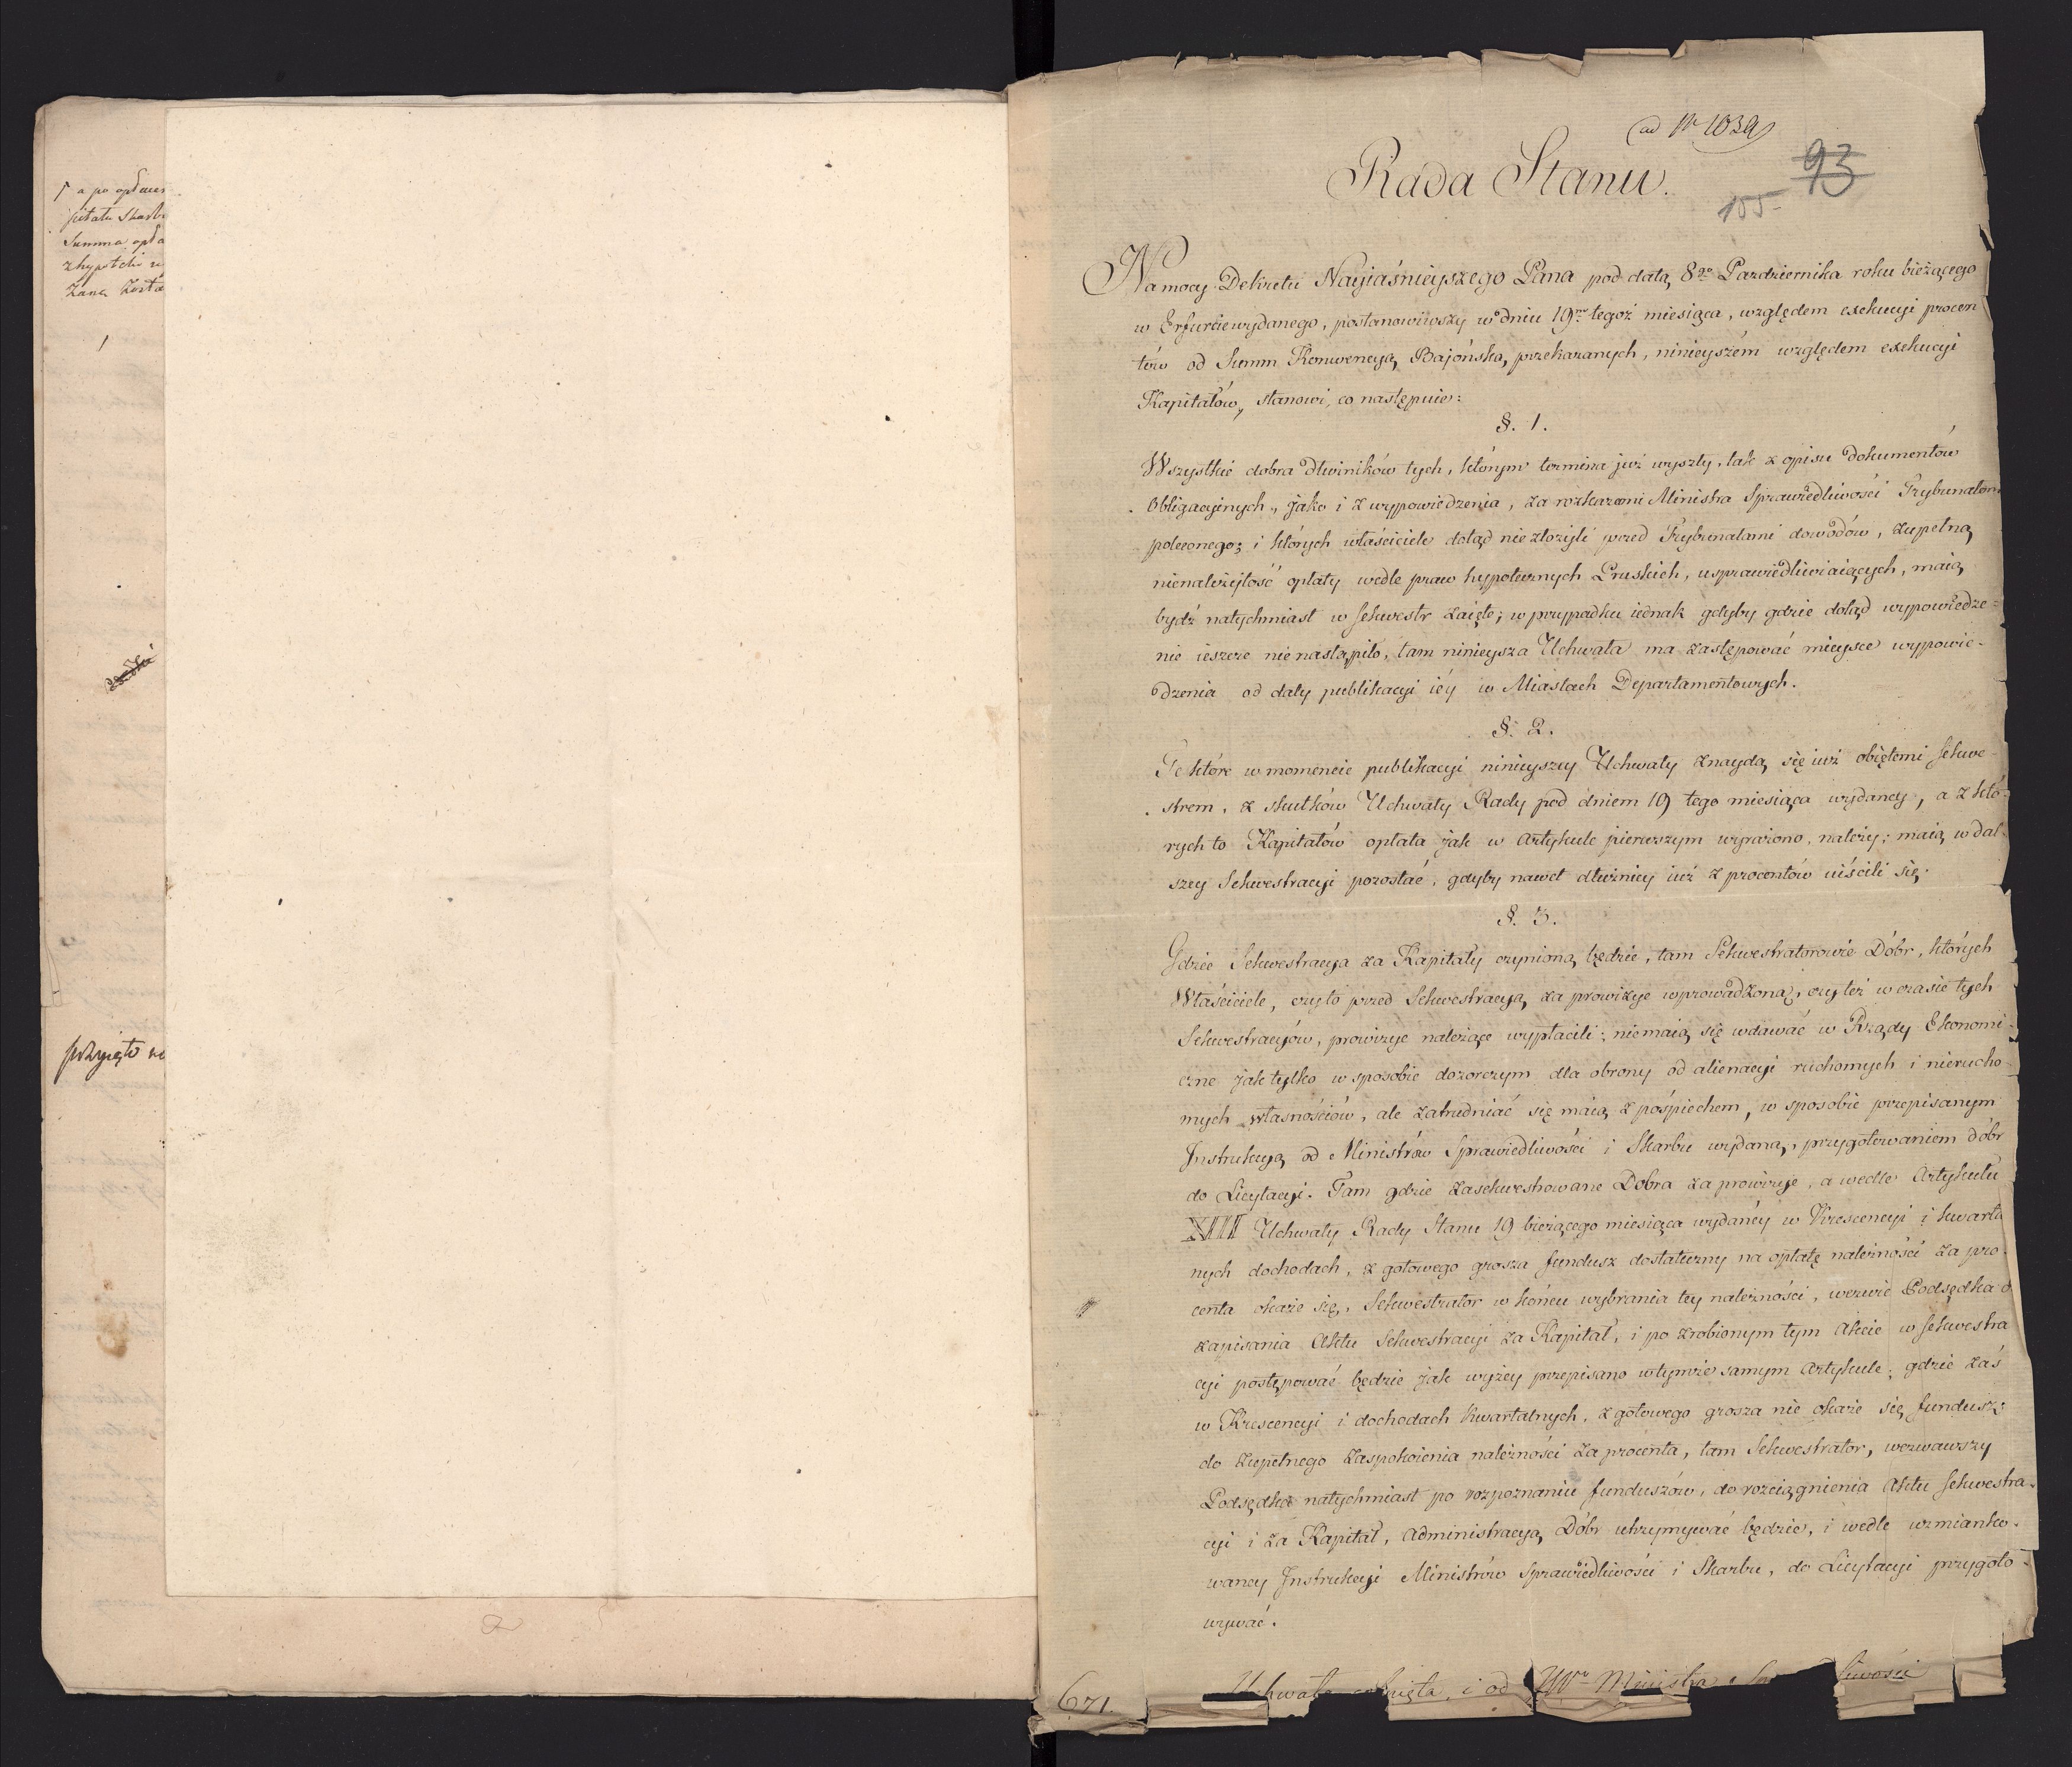 a po
Summa
przyięto
ad Nr 1039
Rada Stanu.
93
155
Na mocy Dekretu Nayiaśnieyszego Pana pod datą 8go Pazdziernika roku bieżącego
w Erfurcie wydanego, postanowiwszy w dniu 19m tegoż miesiąca, względem exekucyi procen
tów od Summ Konwencyą Bajońską przekazanych, ninieyszém względem exekucyi
Kapitałów, stanowi, co następuie:
§. 1.
Wszystkie dobra dłużników tych, którym termina już wyszły, tak z opisu dokumentów
Obligacyinych, jako i z wypowiedzenia, za rozkazami Ministra Sprawiedliwości Trybunałom
poleconego; i których właściciele dotąd nie złożyli przed Trybunałami dowodów, zupełną
nienależytość opłaty wedle praw hypotecznych Pruskich, usprawiedliwiaiących, maią
bydź natychmiast w sekwestr zaięte; w przypadku iednak gdyby gdzie dotąd wypowiedze=
nie ieszcze nie nastąpiło, tam ninieysza Uchwała ma zastępować mieysce wypowie-
dzenia od daty publikacyi iéy w Miastach Departamentowych.
§. 2.
Te które w momencie publikacyi ninieyszey Uchwały znaydą się iuż obiętemi sekwe-
strem, z skutków Uchwały Rady pod dniem 19 tego miesiąca wydaney, a z któ-
rych to Kapitałów opłata jak w Artykule pierwszym wyrażono, należy; maią w dal-
szey Sekwestracyi pozostać, gdyby nawet dłużnicy iuż z procentów uiścili się.
§. 3.
Gdzie Sekwestracya za Kapitały czynioną będzie, tam Sekwestratorowie Dóbr, których
Właściciele, czy to przed Sekwestracyą za prowizye wprowadzoną, czy też w czasie tych
Sekwestracyów, prowizye należące wypłacili; nie maią się wdawać w Rządy Ekonomi-
czne jak tylko w sposobie dozorczym dla obrony od alienacyi ruchomych i nierucho-
mych własnościów, ale zatrudniać się maią z pośpiechem, w sposobie przepisanym
Instrukcyą od Ministrów Sprawiedliwości i Skarbu wydaną, przygotowaniem dóbr
do Licytacyi. Tam gdzie zasekwestrowane Dobra za prowizyje, a wedle Artykułu
XIII Uchwały Rady Stanu 19 bieżącego miesiąca wydanéy w Krescencyi i kwartal
nych dochodach, z gotowego grosza fundusz dostateczny na opłatę należności za pro-
centa okaże się, Sekwestrator w końcu wybrania tey należności, wezwie Podsędka d
zapisania Aktu Sekwestracyi za Kapitał, i po zrobionym tym Akcie w sekwestra
cyi postępować będzie jak wyżey przepisano w tymże samym Artykule; gdzie zaś
w Krescencyi i dochodach kwartalnych, z gotowego grosza nie okaże się fundusz
do zupełnego zaspokoienia należności za procenta, tam Sekwestrator, wezwawszy
Podsędka natychmiast po rozpoznaniu funduszów, do rozciągnienia Aktu sekwestra-
cyi i za Kapitał, Administracyą Dóbr utrzymywać będzie, i wedle wzmianko-
waney Instrukcyi Ministrów Sprawiedliwości i Skarbu, do Licytacyi przygoto-
wywać.
Uchwała i od Ministra
671.